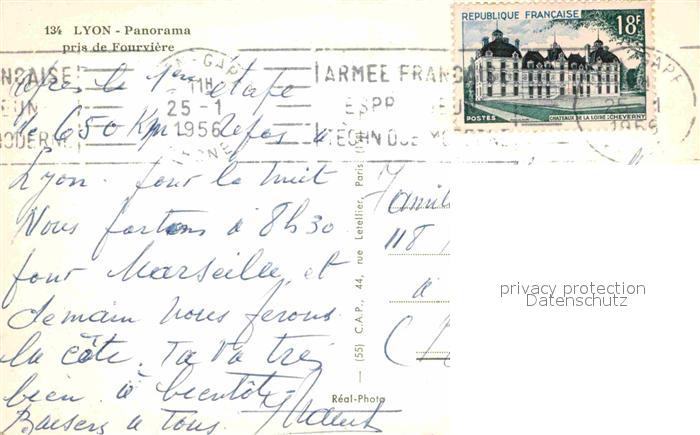 134 LYON - Panorama
pris de Fourvière
RÉPUBLIQUE FRANÇAISE
18F
POSTES
CHATEAUX DE LA LOIRE : CHEVERNY
LYON-GARE
11H
25-1
1956
ARMEE FRANÇAISE
après la 1ère étape
de 650 Km repos à
Lyon pour la nuit
Nous partons à 8h30
pour Marseille et
demain nous ferons
la côte. Ta Va très
bien à bientôt
Baisers à tous.
Famille
118
à
(55) C.A.P., 44, rue Letellier, Paris
Réal-Photo
privacy protection
Datenschutz